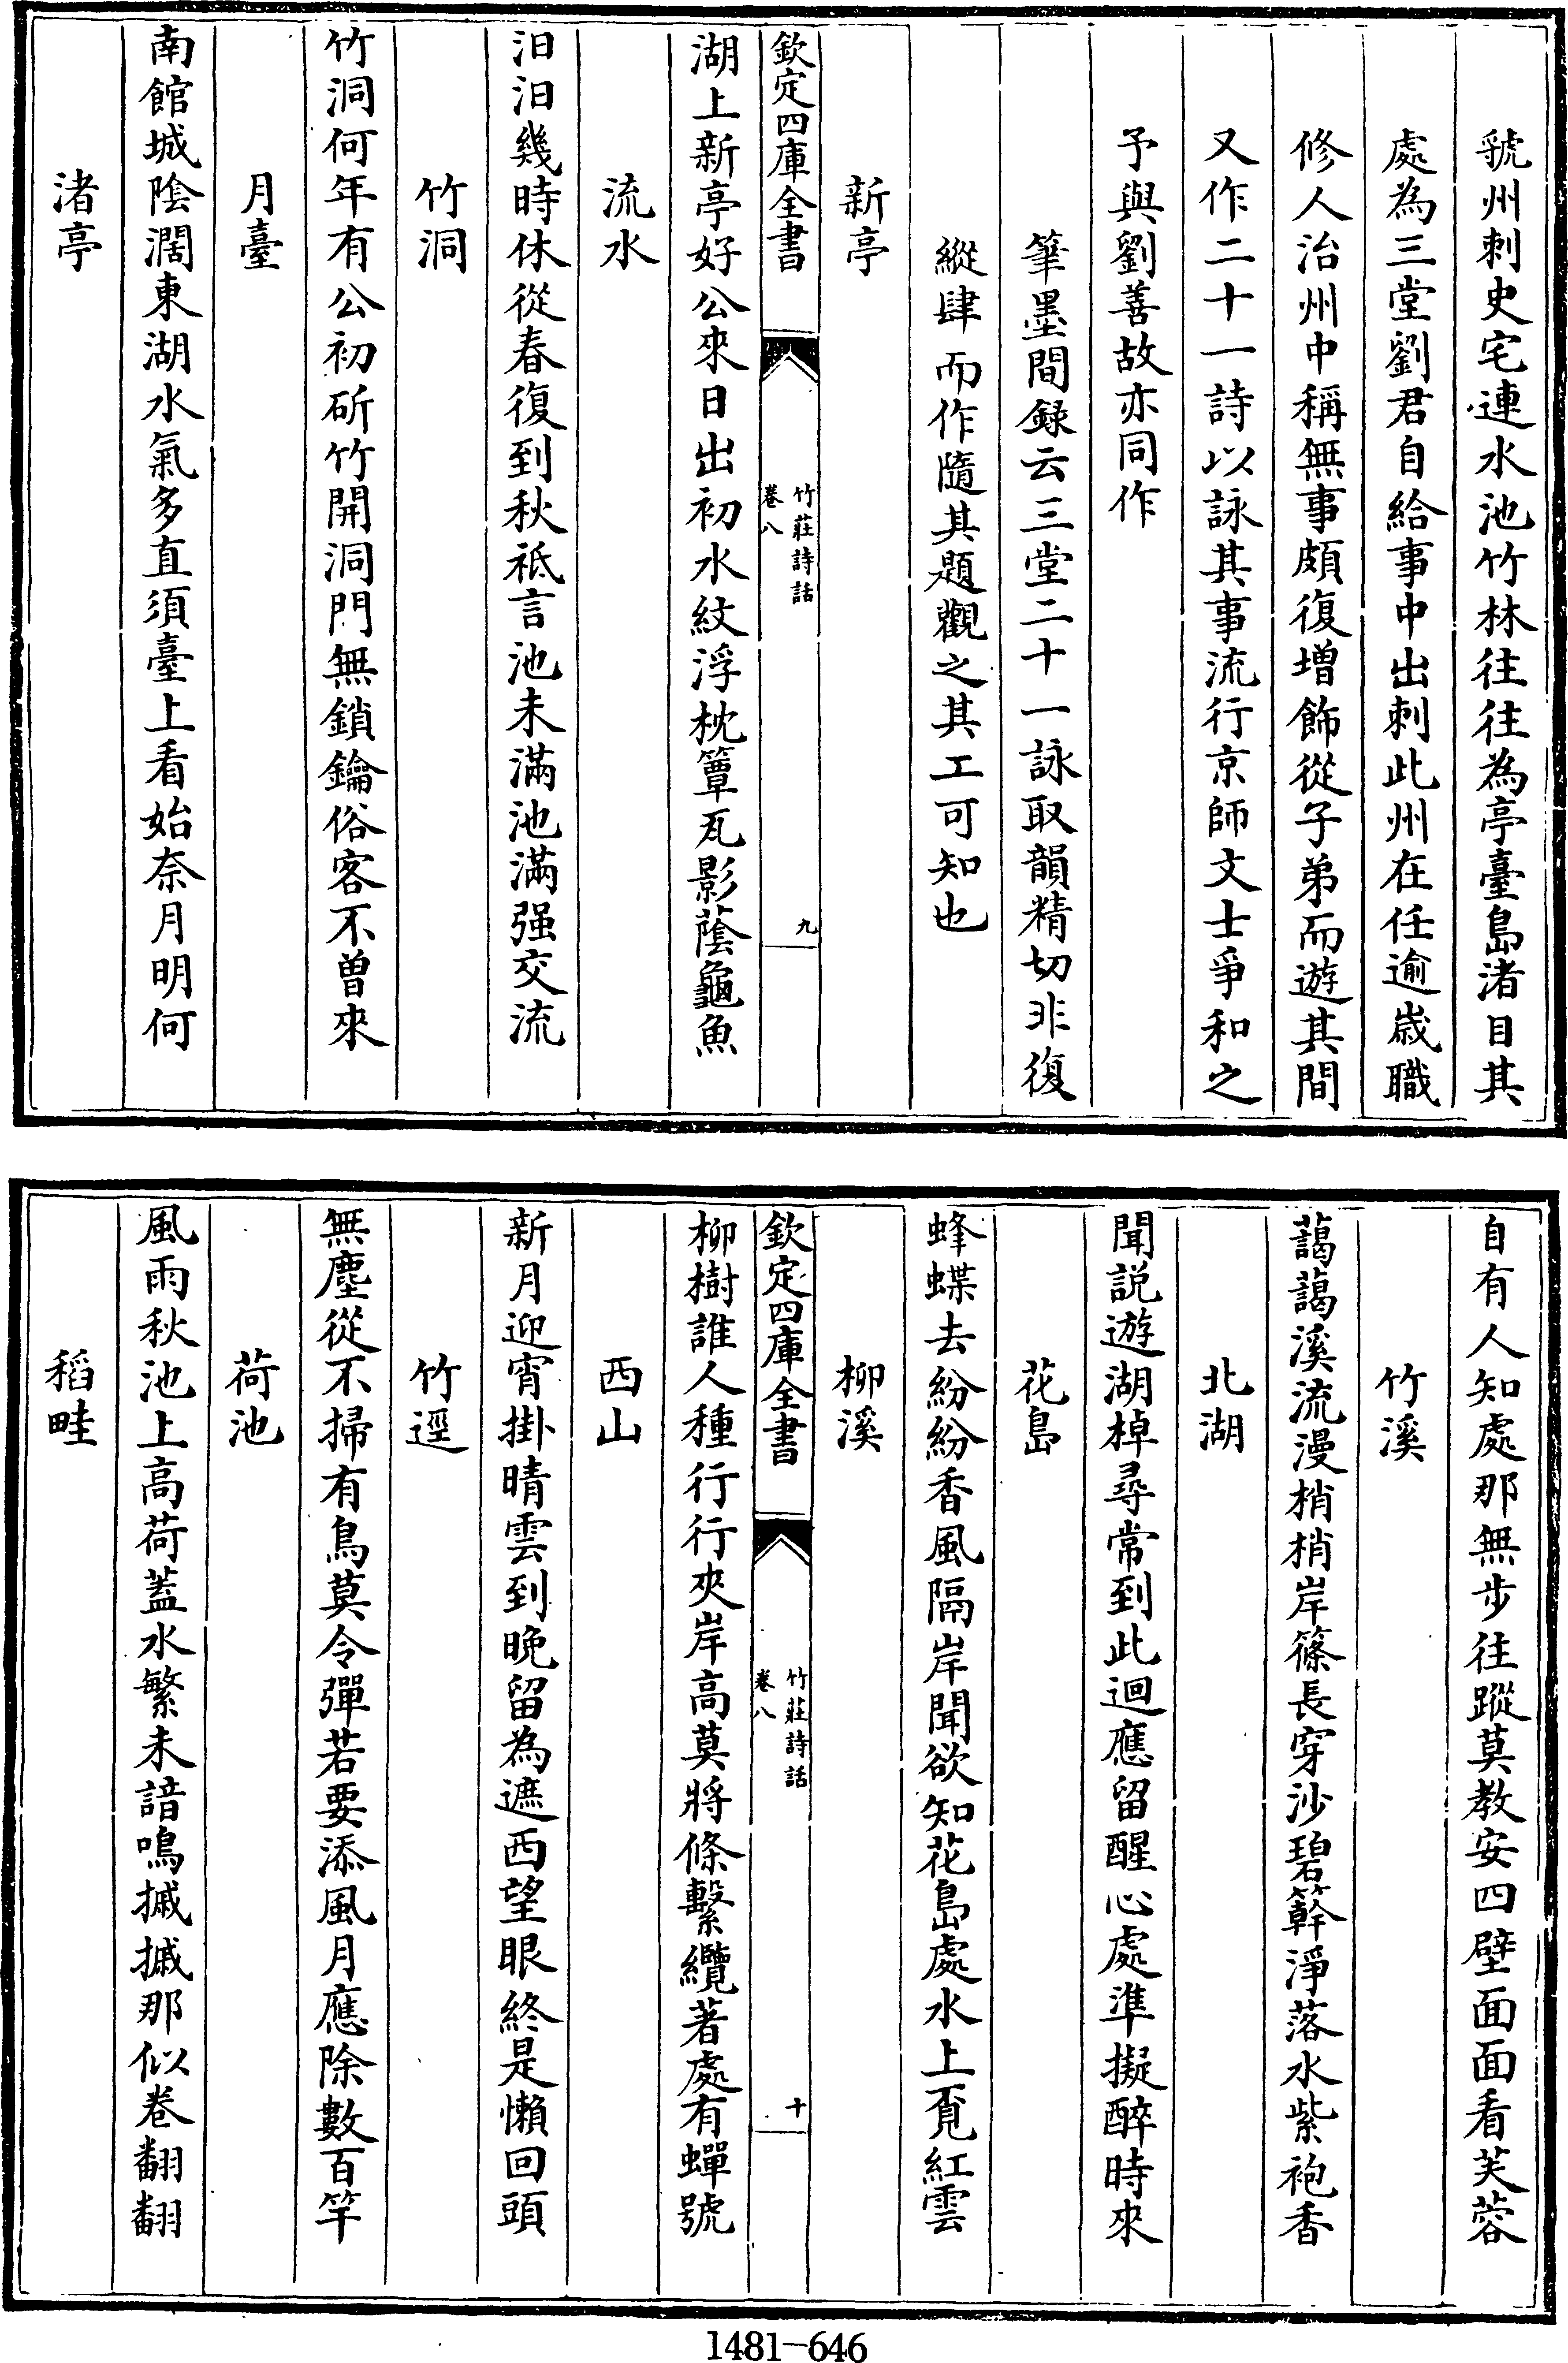 虢州刺史宅連水池竹林往往為亭臺島渚目其
處為三堂劉君自給事中出刺此州在任逾歲職
修人治州中稱無事頗復增飾從子弟而遊其間
又作二十一詩以詠其事流行京師文士爭和之
予與劉善故亦同作
筆墨間録云三堂二十一詠取韻精切非復
縱肆而作隨其題觀之其工可知也
新亭
欽定四庫全書
竹莊詩話
卷八
九
湖上新亭好公來日出初水紋浮枕簟瓦影蔭龜魚
流水
汨汨幾時休從春復到秋秪言池未滿池滿强交流
竹洞
竹洞何年有公初斫竹開洞門無鎖鑰俗客不曽來
月臺
南館城陰濶東湖水氣多直須臺上看始奈月明何
渚亭
自有人知處那無步往蹤莫教安四壁面面看芙蓉
竹溪
藹藹溪流漫梢梢岸篠長穿沙碧簳淨落水紫袍香
北湖
聞説遊湖棹尋常到此迴應留醒心處準擬醉時來
花島
蜂蝶去紛紛香風隔岸聞欲知花島處水上覓紅雲
柳溪
欽定四庫全書
竹莊詩話
卷八
十
柳樹誰人種行行夾岸高莫將條繫纜著處有蟬號
西山
新月迎宵掛晴雲到晚留為遮西望眼終是懶回頭
竹逕
無塵從不掃有鳥莫令彈若要添風月應除數百竿
荷池
風雨秋池上高荷蓋水繁未諳鳴摵摵那似卷翻翻
稻畦
1481-646